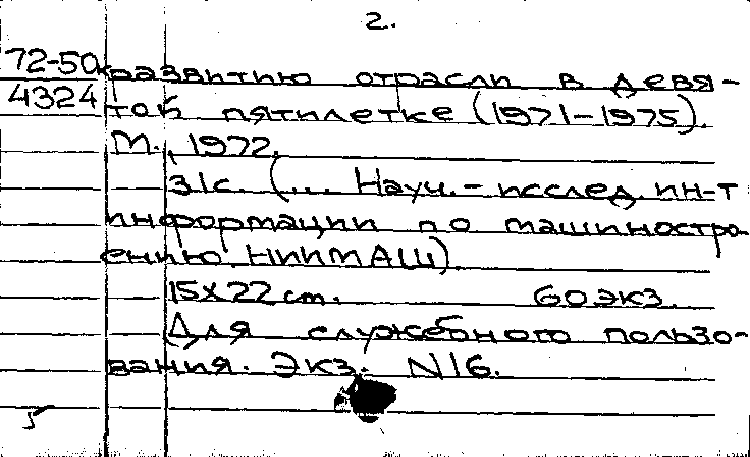 2.
72-50
4324
к развитию отрасли в девя-
той пятилетке (1971-1975).
М., 1972.
31с. (... Науч.-исслед. ин-т
информации по машиностро-
ению. НИИМАШ).
15х22 см. 60 экз.
Для служебного пользо-
вания. Экз. N16.